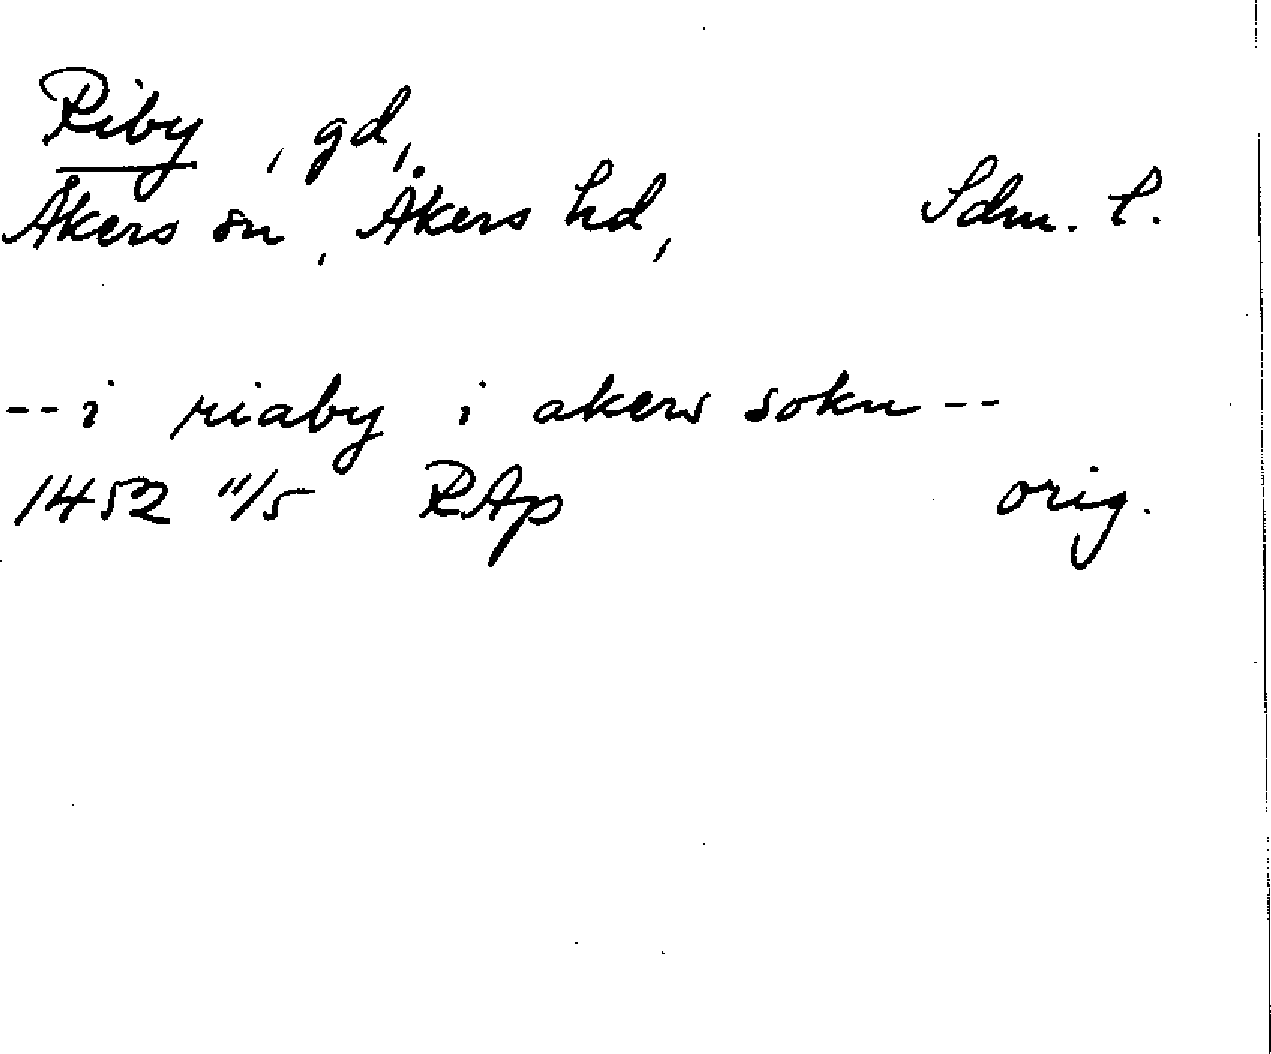 Riby, gd,
Åkers sn, Åkers hd, Sdm. l.
-- i riaby i akers sokn --
1452 11/5 RAp orig.